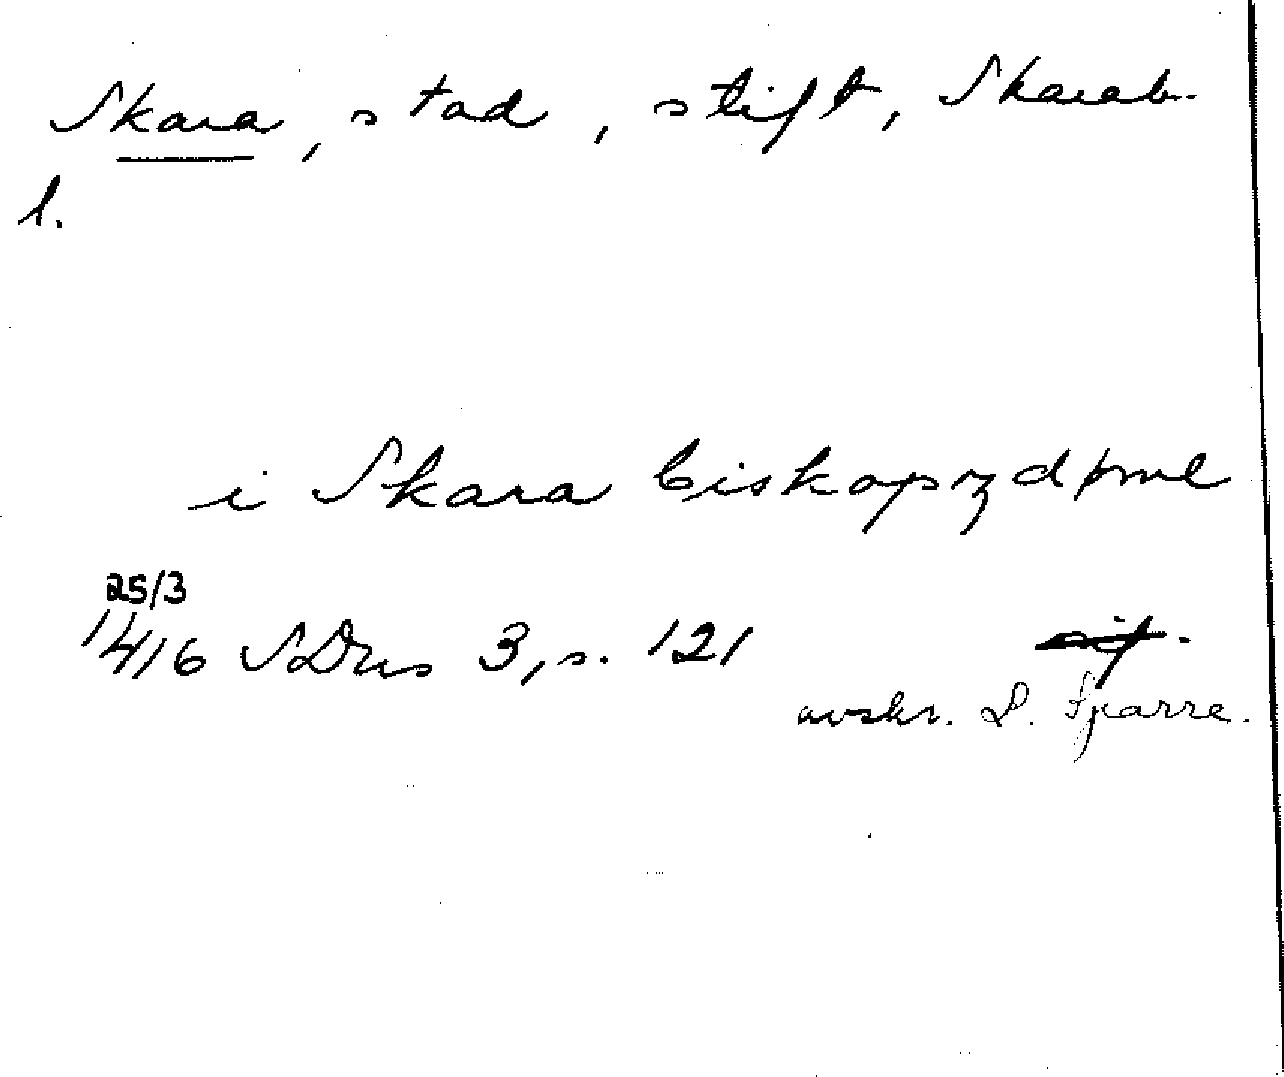 Skara, stad, stift, Skarab.
l.
i Skara biskopzdøme
25/3
1416 SDns 3, s. 121
avskr. L. Sparre.